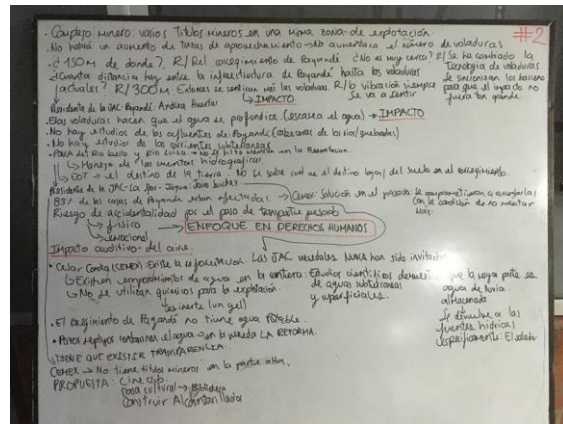 #2
- Complejo minero: varios Títulos mineros en una misma zona de explotación.
- No habrá un aumento de Tasas de aprovechamiento → No aumentaría el número de voladuras
- ¿150M de donde? R/ Del corregimiento de Payandé ¿No es muy cerca? R/ Se ha cambiado la Tecnología de voladuras
- ¿Cuanta distancia hay entre la infraestructura de Payandé hasta las voladuras Se sincronizan los barrenos
actuales? R/ 300M Entonces se sentirán más las voladuras. R/ la vibración siempre para que el impacto no
→ IMPACTO Se va a sentir fuera tan grande.
Presidente de la JAC-Payandé: Andrea Huertas
- Esas voladuras hacen que el agua se profundice. (escasea el agua) → IMPACTO
- No hay estudios de los afluentes de Payandé (cabeceras de los ríos/quebradas)
- No hay estudios de las corrientes subterráneas
- POMCA del Río Luisa no se hizo en la Presentación.
↳ Manejo de las cuentas hidrográficas.
↳ EOT → el destino de la tierra. No se sabe cual es el destino legal del suelo en el corregimiento.
Presidente de la JAC-La
83% de las casas de Payandé están afectadas: → Cemex: Solución en el pasado. Se comprometieron a arreglarlas
con la condición de no molestar más.
Riesgo de accidentalidad por el paso de transporte pesado
↳ físico
↳ emocional → ENFOQUE EN DERECHOS HUMANOS
Impacto auditivo - del aire.
• Cesar (CEMEX): Existe la reforestación. Las JAC veredales NUNCA han sido invitadas
↳ Existen empozamientos de agua en la cantera: Estudios científicos demuestran que la mayor parte es
de aguas subterráneas agua de lluvia
y superficiales. almacenada
↳ No se utilizan químicos para la explotación. Se devuelve a las
es inerte (un gel) fuentes hídricas
específicamente: El
• El corregimiento de Payandé no tiene agua Potable.
• Pozos sépticos contaminan el agua en la vereda LA REFORMA.
↳ TIENE QUE EXISTIR TRANSPARENCIA.
CEMEX → No tiene títulos mineros en la parte alta.
PROPUESTA: Cine club.
Casa cultural → Biblioteca
Construir Alcantarillado